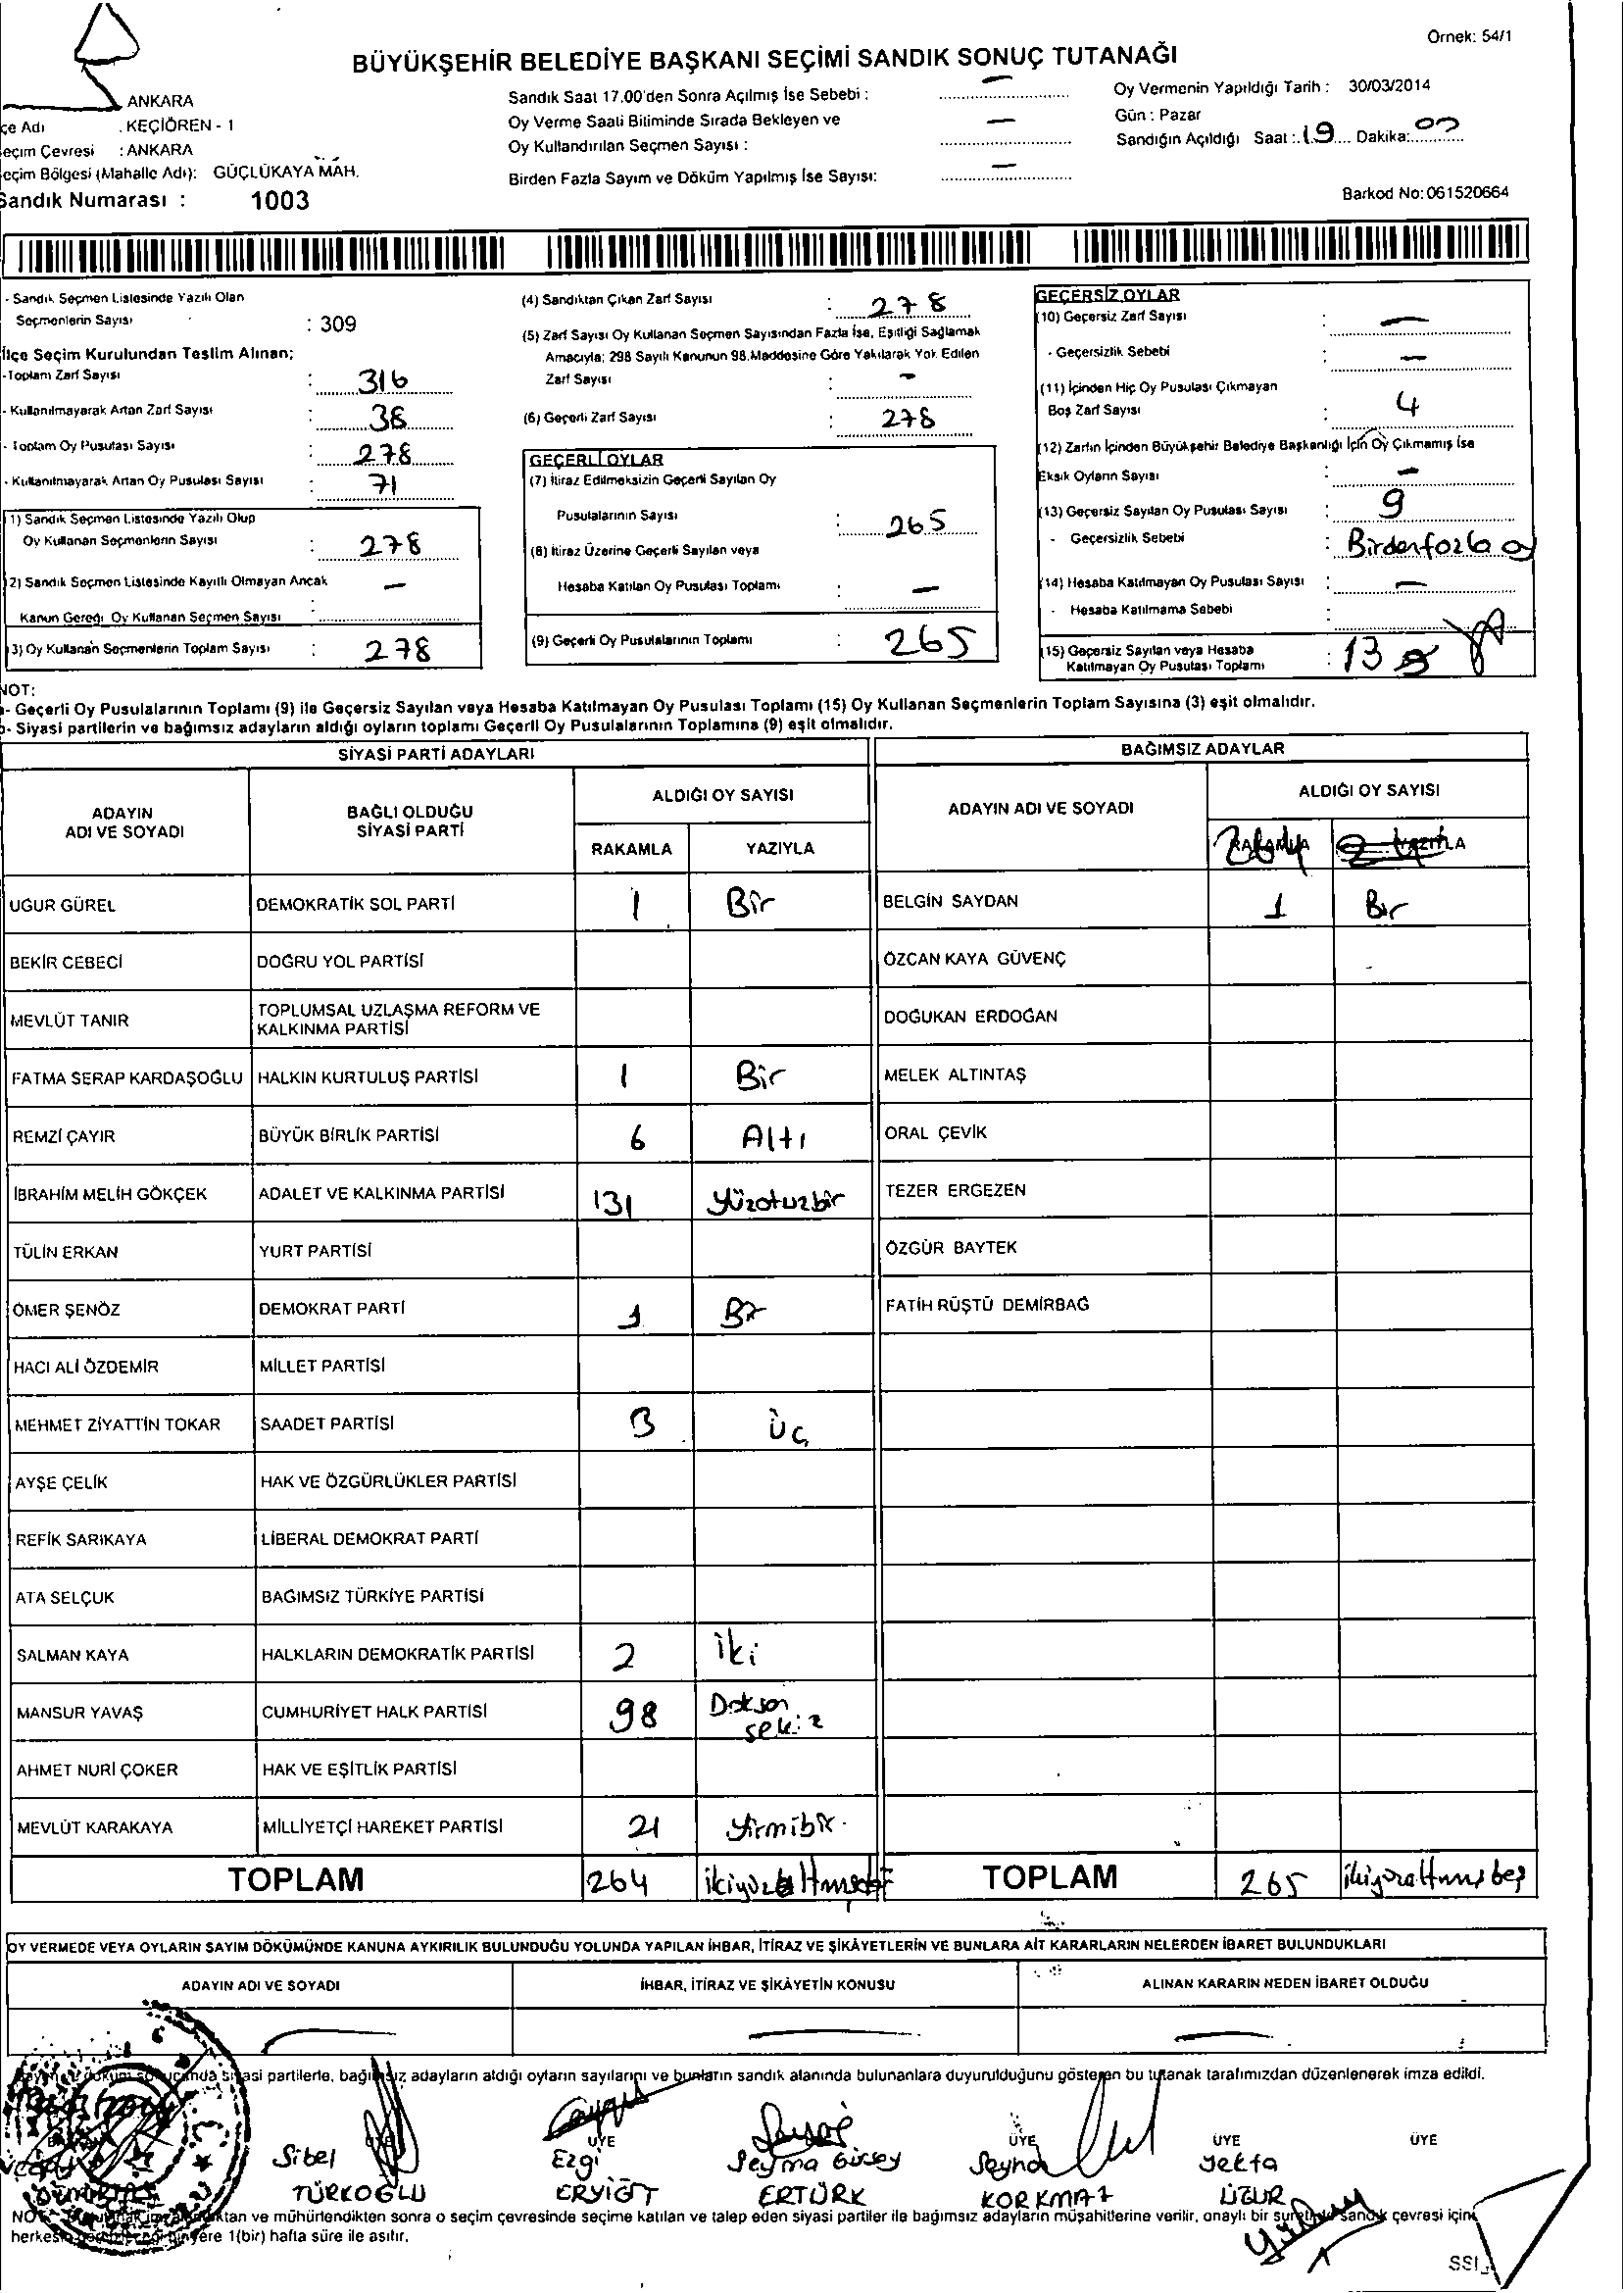 Örnek: 54/1
BÜYÜKŞEHİR BELEDİYE BAŞKANI SEÇİMİ SANDIK SONUÇ TUTANAĞI
ANKARA
çe Adı : KEÇİÖREN - 1
eçim Çevresi : ANKARA
eçim Bölgesi (Mahalle Adı): GÜÇLÜKAYA MAH.
Sandık Numarası : 1003
Sandık Saat 17.00'den Sonra Açılmış İse Sebebi : —
Oy Verme Saati Bitiminde Sırada Bekleyen ve
Oy Kullandırılan Seçmen Sayısı : —
Birden Fazla Sayım ve Döküm Yapılmış İse Sayısı: —
Oy Vermenin Yapıldığı Tarih : 30/03/2014
Gün : Pazar
Sandığın Açıldığı Saat : 19 Dakika: 00
Barkod No: 061520664
- Sandık Seçmen Listesinde Yazılı Olan
Seçmenlerin Sayısı : 309
İlçe Seçim Kurulundan Teslim Alınan;
-Toplam Zarf Sayısı : 316
- Kullanılmayarak Artan Zarf Sayısı : 38
- Toplam Oy Pusulası Sayısı : 278
- Kullanılmayarak Artan Oy Pusulası Sayısı : 71
1) Sandık Seçmen Listesinde Yazılı Olup
Oy Kullanan Seçmenlerin Sayısı : 278
2) Sandık Seçmen Listesinde Kayıtlı Olmayan Ancak
Kanun Gereği Oy Kullanan Seçmen Sayısı : —
3) Oy Kullanan Seçmenlerin Toplam Sayısı : 278
(4) Sandıktan Çıkan Zarf Sayısı : 278
(5) Zarf Sayısı Oy Kullanan Seçmen Sayısından Fazla İse, Eşitliği Sağlamak
Amacıyla; 298 Sayılı Kanunun 98.Maddesine Göre Yakılarak Yok Edilen
Zarf Sayısı : -
(6) Geçerli Zarf Sayısı : 278
GEÇERLİ OYLAR
(7) İtiraz Edilmeksizin Geçerli Sayılan Oy
Pusulalarının Sayısı : 265
(8) İtiraz Üzerine Geçerli Sayılan veya
Hesaba Katılan Oy Pusulası Toplamı : —
(9) Geçerli Oy Pusulalarının Toplamı : 265
GEÇERSİZ OYLAR
(10) Geçersiz Zarf Sayısı : —
- Geçersizlik Sebebi : —
(11) İçinden Hiç Oy Pusulası Çıkmayan
Boş Zarf Sayısı : 4
(12) Zarfın İçinden Büyükşehir Belediye Başkanlığı İçin Oy Çıkmamış İse
Eksik Oyların Sayısı : —
(13) Geçersiz Sayılan Oy Pusulası Sayısı : 9
- Geçersizlik Sebebi : Birden fazla oy
(14) Hesaba Katılmayan Oy Pusulası Sayısı : —
- Hesaba Katılmama Sebebi :
(15) Geçersiz Sayılan veya Hesaba
Katılmayan Oy Pusulası Toplamı : 13
NOT:
a- Geçerli Oy Pusulalarının Toplamı (9) ile Geçersiz Sayılan veya Hesaba Katılmayan Oy Pusulası Toplamı (15) Oy Kullanan Seçmenlerin Toplam Sayısına (3) eşit olmalıdır.
b- Siyasi partilerin ve bağımsız adayların aldığı oyların toplamı Geçerli Oy Pusulalarının Toplamına (9) eşit olmalıdır.
SİYASİ PARTİ ADAYLARI BAĞIMSIZ ADAYLAR
ADAYIN ADI VE SOYADI BAĞLI OLDUĞU SİYASİ PARTİ ALDIĞI OY SAYISI ADAYIN ADI VE SOYADI ALDIĞI OY SAYISI
RAKAMLA YAZIYLA RAKAMLA 264 YAZIYLA
UĞUR GÜREL DEMOKRATİK SOL PARTİ 1 Bir BELGİN SAYDAN 1 Bir
BEKİR CEBECİ DOĞRU YOL PARTİSİ ÖZCAN KAYA GÜVENÇ
MEVLÜT TANIR TOPLUMSAL UZLAŞMA REFORM VE KALKINMA PARTİSİ DOĞUKAN ERDOĞAN
FATMA SERAP KARDAŞOĞLU HALKIN KURTULUŞ PARTİSİ 1 Bir MELEK ALTINTAŞ
REMZİ ÇAYIR BÜYÜK BİRLİK PARTİSİ 6 Altı ORAL ÇEVİK
İBRAHİM MELİH GÖKÇEK ADALET VE KALKINMA PARTİSİ 131 Yüzotuzbir TEZER ERGEZEN
TÜLİN ERKAN YURT PARTİSİ ÖZGÜR BAYTEK
ÖMER ŞENÖZ DEMOKRAT PARTİ 1 Bir FATİH RÜŞTÜ DEMİRBAĞ
HACI ALİ ÖZDEMİR MİLLET PARTİSİ
MEHMET ZİYATTİN TOKAR SAADET PARTİSİ 3 Üç
AYŞE ÇELİK HAK VE ÖZGÜRLÜKLER PARTİSİ
REFİK SARIKAYA LİBERAL DEMOKRAT PARTİ
ATA SELÇUK BAĞIMSIZ TÜRKİYE PARTİSİ
SALMAN KAYA HALKLARIN DEMOKRATİK PARTİSİ 2 iki
MANSUR YAVAŞ CUMHURİYET HALK PARTİSİ 98 Doksan sekiz
AHMET NURİ ÇOKER HAK VE EŞİTLİK PARTİSİ
MEVLÜT KARAKAYA MİLLİYETÇİ HAREKET PARTİSİ 21 Yirmibir
TOPLAM 264 ikiyüzaltmışdört TOPLAM 265 ikiyüzaltmışbeş
OY VERMEDE VEYA OYLARIN SAYIM DÖKÜMÜNDE KANUNA AYKIRILIK BULUNDUĞU YOLUNDA YAPILAN İHBAR, İTİRAZ VE ŞİKÂYETLERİN VE BUNLARA AİT KARARLARIN NELERDEN İBARET BULUNDUKLARI
ADAYIN ADI VE SOYADI İHBAR, İTİRAZ VE ŞİKÂYETİN KONUSU ALINAN KARARIN NEDEN İBARET OLDUĞU
siyasi partilerle, bağımsız adayların aldığı oyların sayılarını ve bunların sandık alanında bulunanlara duyurulduğunu gösteren bu tutanak tarafımızdan düzenlenerek imza edildi.
ÜYE ÜYE ÜYE ÜYE ÜYE
Sibel Ezgi Şeyma Gürsey Şeyna Yekta
TÜRKOĞLU ERYİĞİT ERTÜRK KORKMAZ UĞUR
NOT: ve mühürlendikten sonra o seçim çevresinde seçime katılan ve talep eden siyasi partiler ile bağımsız adayların müşahitlerine verilir, onaylı bir sureti de sandık çevresi için
herkesin 1(bir) hafta süre ile asılır.
SSI